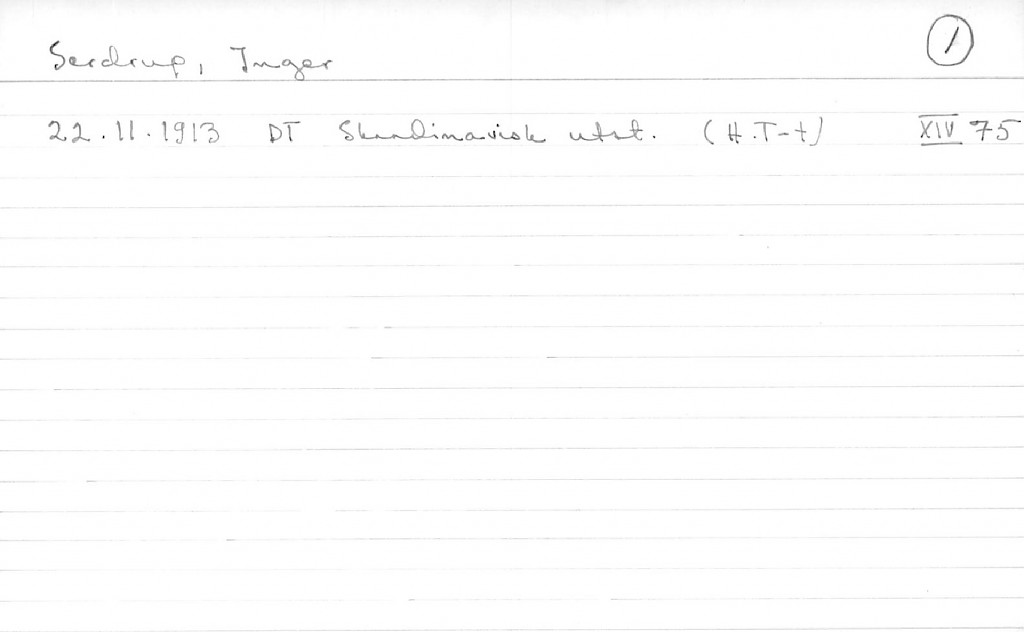 Serdrup, Inger ①
22.11.1913 DT Skandinavisk utst. (H.T-t) XIV 75